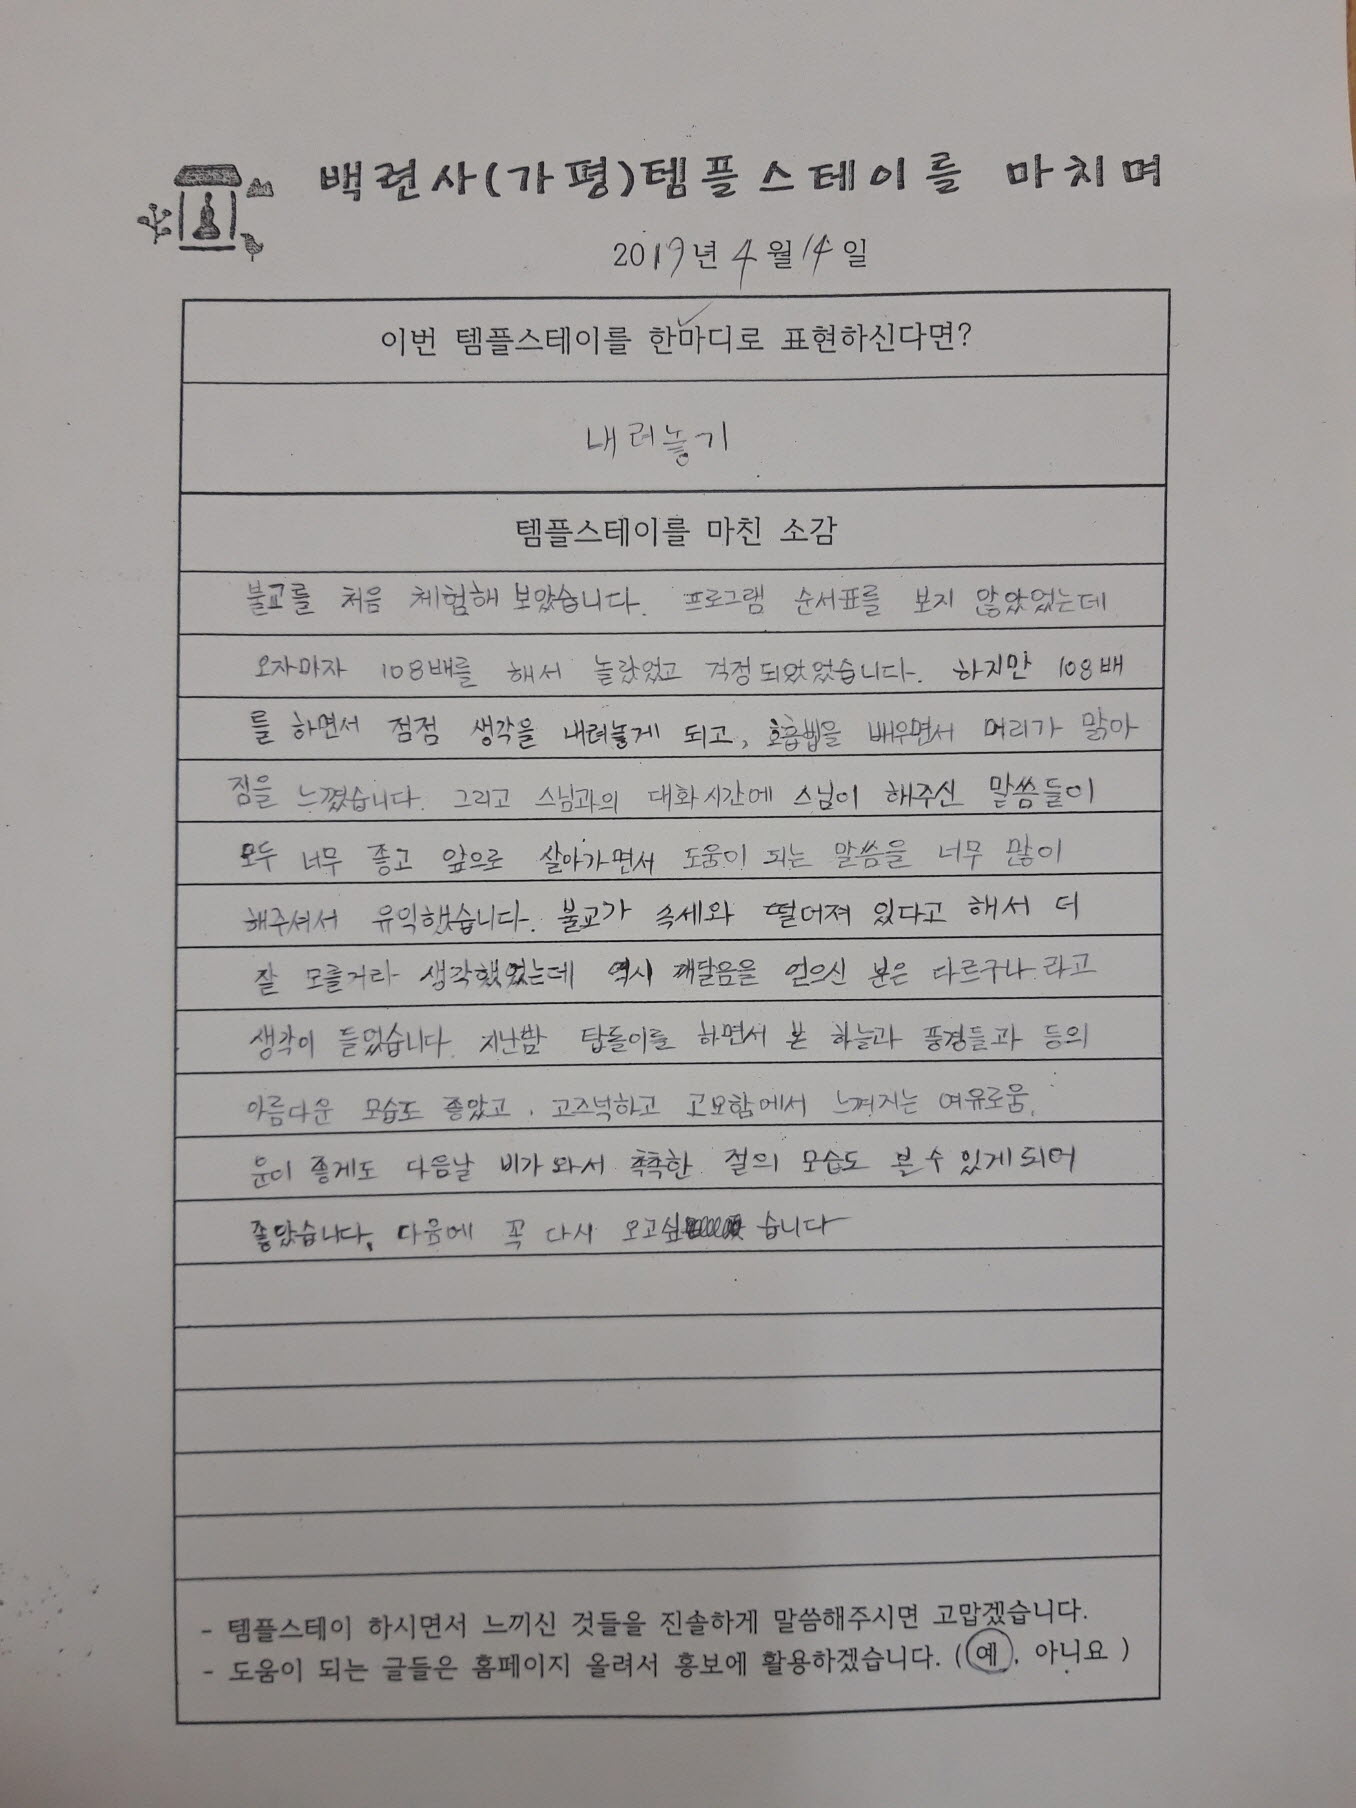 백련사(가평)템플스테이를 마치며
2019년 4월 14일
이번 템플스테이를 한마디로 표현하신다면?
내려놓기
템플스테이를 마친 소감
불교를 처음 체험해 보았습니다. 프로그램 순서표를 보지 않았었는데
오자마자 108배를 해서 놀랐었고 걱정되었었습니다. 하지만 108배
를 하면서 점점 생각을 내려놓게 되고, 호흡법을 배우면서 머리가 맑아
짐을 느꼈습니다. 그리고 스님과의 대화시간에 스님이 해주신 말씀들이
모두 너무 좋고 앞으로 살아가면서 도움이 되는 말씀을 너무 많이
해주셔서 유익했습니다. 불교가 속세와 떨어져 있다고 해서 더
잘 모를거라 생각했었는데 역시 깨달음을 얻으신 분은 다르구나 라고
생각이 들었습니다. 지난밤 탑돌이를 하면서 본 하늘과 풍경들과 등의
아름다운 모습도 좋았고, 고즈넉하고 고요함에서 느껴지는 여유로움,
운이 좋게도 다음날 비가 와서 촉촉한 절의 모습도 본 수 있게 되어
좋았습니다. 다음에 꼭 다시 오고싶 습니다
- 템플스테이 하시면서 느끼신 것들을 진솔하게 말씀해주시면 고맙겠습니다.
- 도움이 되는 글들은 홈페이지 올려서 홍보에 활용하겠습니다. (예, 아니요 )